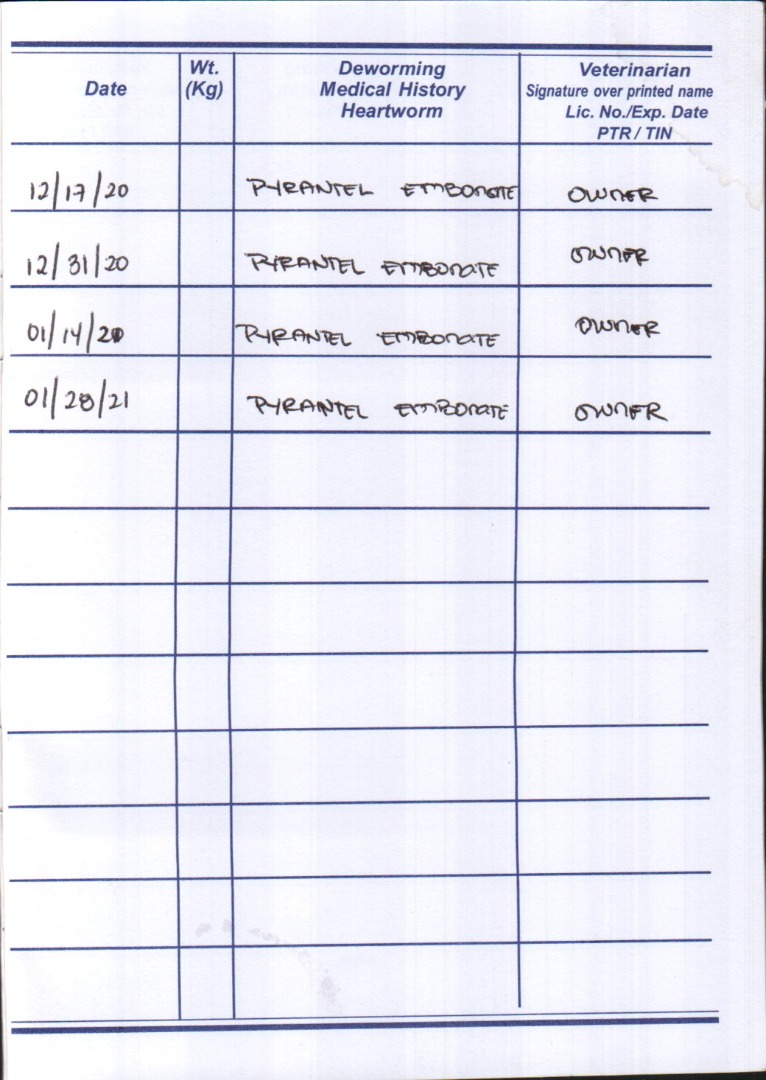 Date Wt. (Kg) Deworming Medical History Heartworm Veterinarian Signature over printed name Lic. No./Exp. Date PTR / TIN
12/17/20 PYRANTEL EMBONATE OWNER
12/31/20 PYRANTEL EMBONATE OWNER
01/14/20 PYRANTEL EMBONATE OWNER
01/28/21 PYRANTEL EMBONATE OWNER